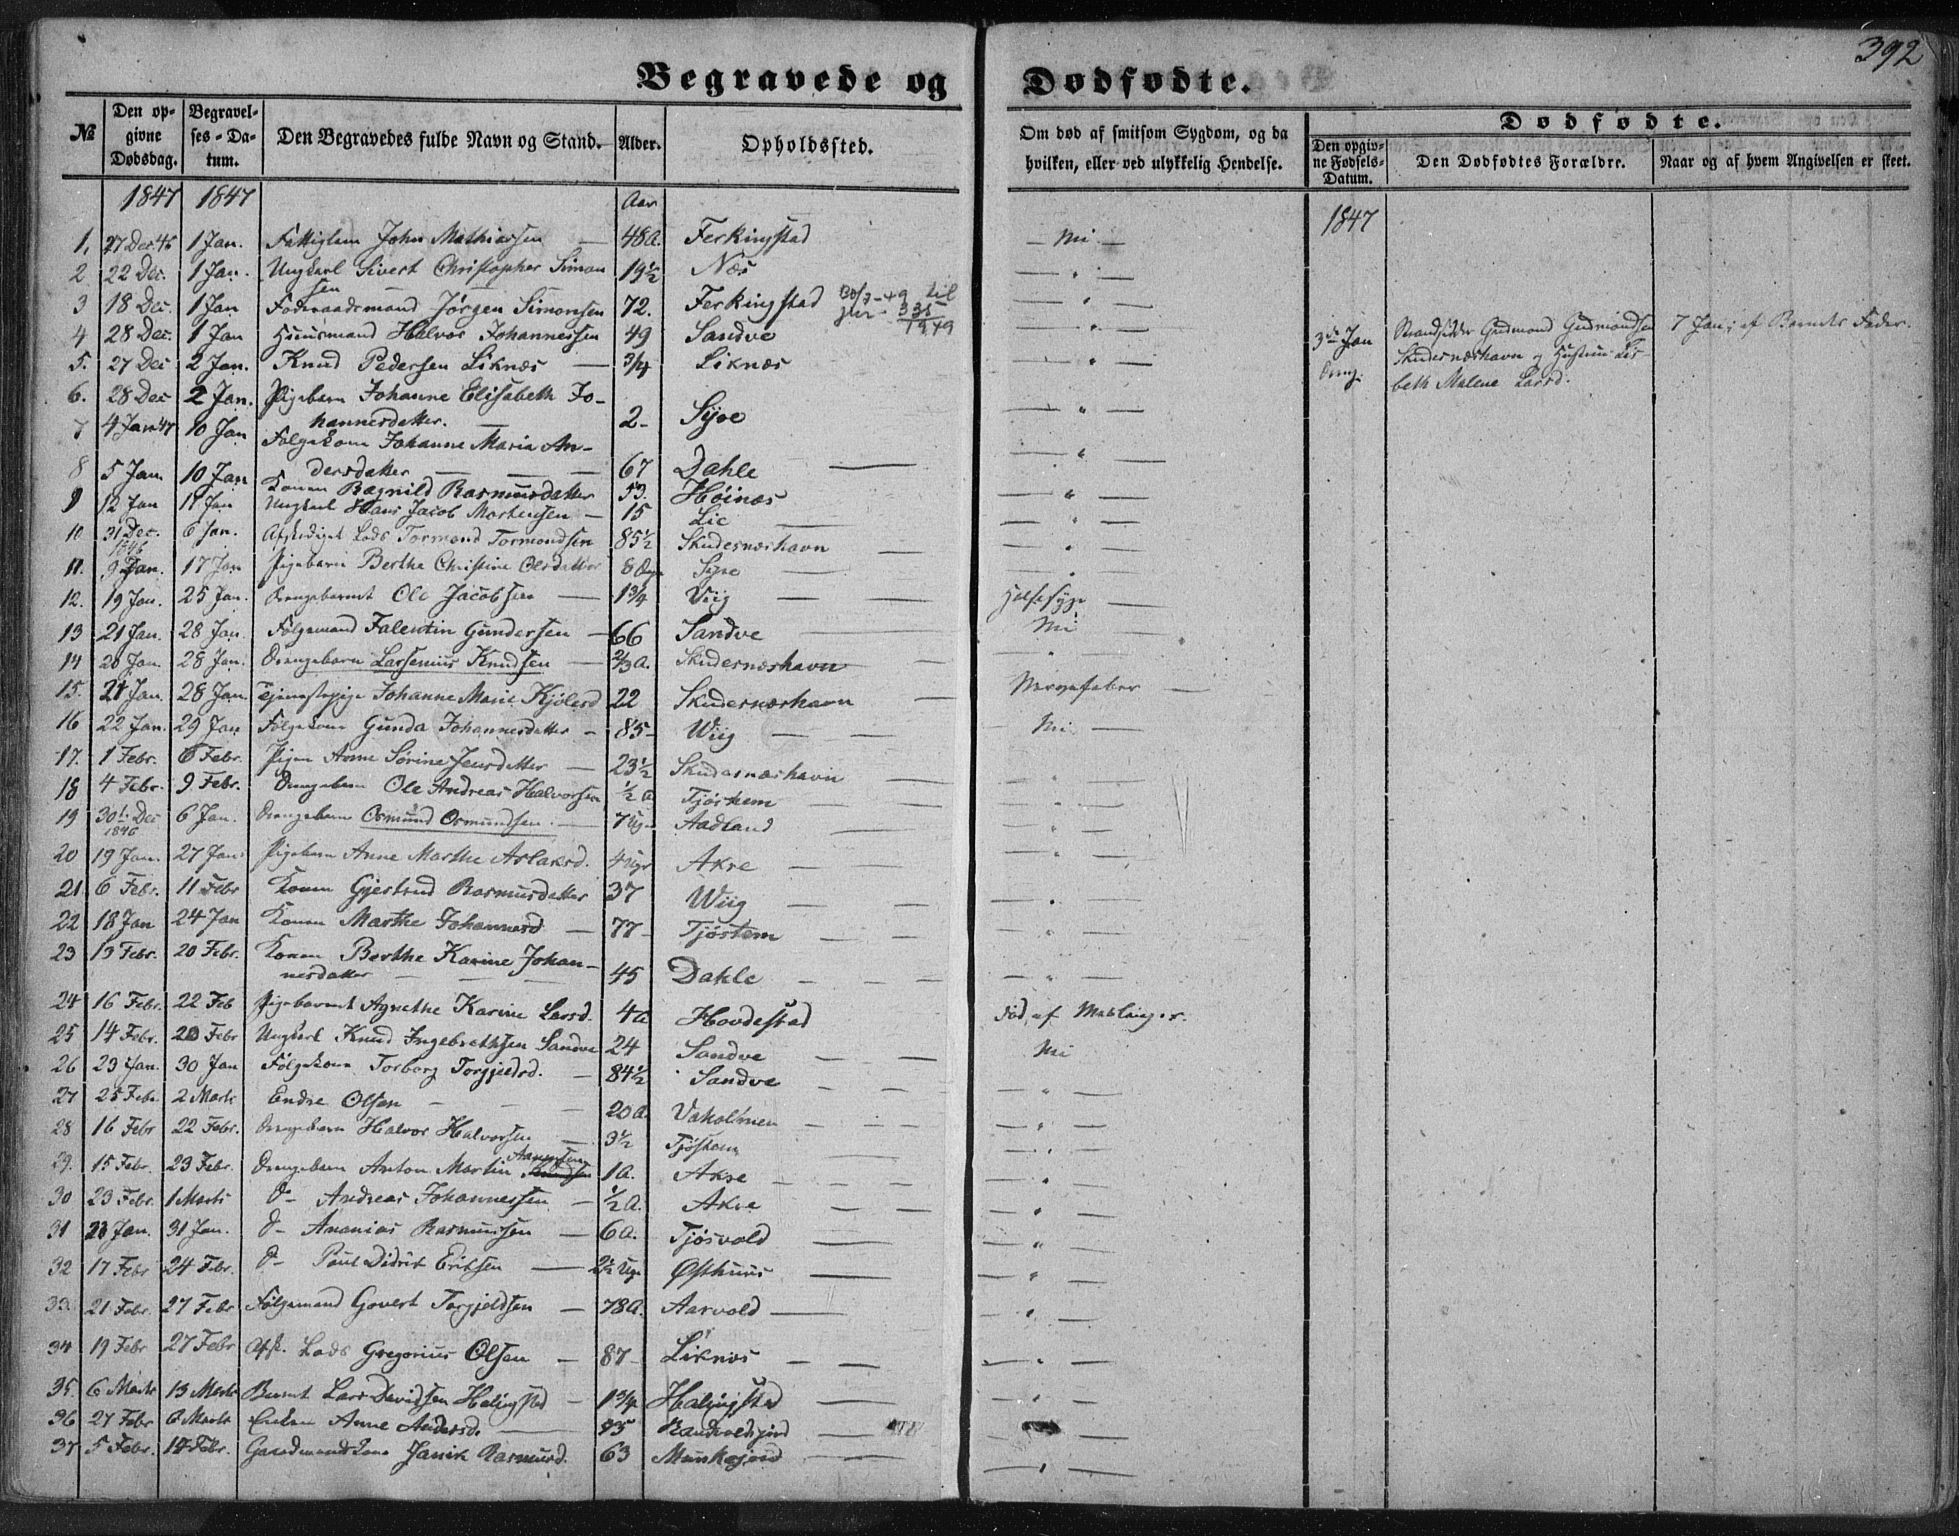 392
Begravede og Dødfødte.
№ Den opgivne Dødsdag. Begravelses-Datum. Den Begravedes fulde Navn og Stand. Alder. Opholdssted. Om død af smitsom Sygdom, og da hvilken, eller ved ulykkelig Hendelse. Dødfødte. Den opgivne Fødsels-Datum. Den Dødfødtes Forældre. Naar og af hvem Angivelsen er skeet.
1847 1847 Aar 1847
1, 27 Dec 46 1 Jan. Fattiglem John Mathiassen — 48 A. Ferkingstad — Nei —
2 22 Dec. 1 Jan. Ungkarl Sivert Christopher Simon
sen 19½ Næs — " —
3 18 Dec. 1 Jan Foderaadsmand Jørgen Simonsen 72. Ferkingstad — " —
4 28 Dec. 1 Jan Huusmand Halvor Johannessen 49 Sandve — " —
3die Jan Strandsidder Gudmond Gudmondsen 7 Jan; af Barnets Fader.
Skudesnæshavn og Hustrue Lis-
beth Malene Larsd.
5. 27 Dec 2 Jan. Knud Pedersen Liknæs — 3/4 Liknæs — " —
6. 28 Dec 2 Jan. Pigebarn Johanne Elisabeth Jo-
hannesdatter. — 2 - Syre — " —
7 4 Jan 47 10 Jan Følgekone Johanne Maria An-
dersdatter — — — 67 Dahle — — " —
8 5 Jan. 10 Jan Konen Ragnild Rasmusdatter 53. Høinæs — " —
9 12 Jan 17 Jan Ungkarl Hans Jacob Mortensen - 15 Lie — — " —
10 31 Dec. 1846 6 Jan. Afskediget Lods Tormond Tormondsen 85½ Skudesnæshavn — — " —
11. 9 Jan. 17 Jan Pigebarn Berthe Christine Olsdatter 8 Syre — — — " —
12. 19 Jan. 25 Jan. Drengebarnet Ole Jacobsen — 1¾ Viig — — Halssyge —
13 21 Jan. 28 Jan. Følgemand Falentin Gundersen - 66 Sandve — — Nei —
14 20 Jan. 28 Jan. Drengebarn Larsenius Knudsen — 2/3 A. Skudesnæshavn — — " —
15. 21 Jan. 28 Jan. Tjenestepige Johanne Marie Kjølesd 22 Skudesnæshavn — Nervefeber —
16 22 Jan. 29 Jan Følgekone Gunda Johannesdatter - 85 - Wiig — — — Nei —
17. 1 Febr. 6 Febr. Pigen Anne Sørine Jensdatter — 23½ Skudesnæshavn — — " —
18 4 Febr. 9 Febr. Drengebarn Ole Andreas Halvorsen ½ a Tjøstem — " —
19 30te Dec 1846 6 Jan. Drengebarn Osmund Osmundsen. — 7 Ug. Aadland — — " —
20 19 Jan. 27 Jan. Pigebarn Anne Marthe Aslaksd. 4 Ugr Akre — — — " —
21 6 Febr. 11 Febr Konen Gjertrud Rasmusdatter 37 Wiig — — — " —
22 18 Jan 24 Jan Konen Marthe Johannesd. — 77 - Tjøstem — — — — " —
23 13 Febr. 20 Febr. Konen Berthe Karine Johan-
nesdatter — — — 45 Dahle — — — — — " —
24 16 Febr. 22 Feb Pigebarnet Agnethe Karine Larsd. 4 a Hovdestad Død af Mæslinger.
25 14 Febr. 20 Febr Ungkarl Knud Ingebrethsen Sandve 24 Sandve — — — Nei
26 23 Jan. 30 Jan Følgekone Torborg Torgjeldsd. — 84½ Sandve — — — — " —
27 25 Febr. 2 Marts Endre Olsen — — — 20 A. Vaholmen — — — — " —
28 16 Febr 22 Febr. Drengebarn Halvor Halvorsen — 3½ Tjøstem — " —
29. 15 Febr. 23 Febr. Drengebarn Anton Martin Aanensen 1 A. Akre — — — — — " —
30 23 Febr. 1 Marts D- Andreas Johannessen — ½ A. Akre — — — — " —
31 23 Jan. 31 Jan. D- Ananias Rasmussen — 6 A. Tjøsvold — — — " —
32 17 Febr 24 Febr. D- Poul Didrik Eriksen — 2½ Ugr Østhuus — — — " —
33. 21 Febr. 27 Febr Følgemand Govert Torgjeldsen — 78 A. Aarvold — — — " —
34 19 Febr 27 Febr Afsk. Lods Gregorius Olsen — 87 - Liknæs — — — — " —
35. 6 Marts 13 Marts Barnet Lars Davidsen Halingstad — 1¾ Halingstad — — — " —
36 27 Febr 6 Marts Enken Anne Andersd. — Sandvoldsjord — — —
37 5 Febr. 14 Febr. Gaardmandskone Janik Rasmusd. 63 Munkejord — — — " —